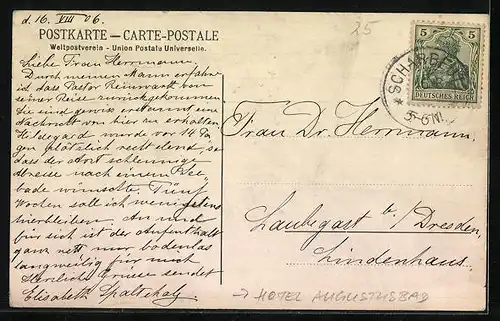 d. 16. VIII 06.
25
POSTKARTE — CARTE-POSTALE
Weltpostverein - Union Postale Universelle.
5 5
DEUTSCHES REICH
* SCHARB
5-6 N
Liebe Frau Herrmann.
Durch meinen Mann erfahre
ich dass Pastor Reinwarth von
seiner Reise zurückgekommen
Sie sind gewiss erstaunt eine
Nachricht von hier zu erhalten
Hildegard wurde vor 14 Ta-
gen plötzlich recht elend, so
dass der Arzt schleunige
Abreise nach einem See
bade wünschte. Fünf
Wochen soll ich wenigstens
hierbleiben. An und
für sich ist der Aufenthalt
ganz nett nur bodenlos
langweilig für mich
Herzliche Grüsse sendet
Elisabeth Spalteholz
Frau Dr. Herrmann.
Laubegast b./Dresden,
Lindenhaus.
→ HOTEL AUGUSTUSBAD